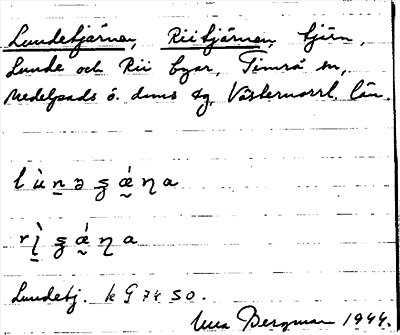 Lundetjärnen, Riitjärnen, tjärn,
Lunde och Rii byar, Timrå sn,
Medelpads ö. doms sg, Västernorrl. län.
l ù n ə ʂ ǽ ɳ a
r ì ʂ ǽ ɳ a
Lundetj. k G 74 50.
Bergman 1944.